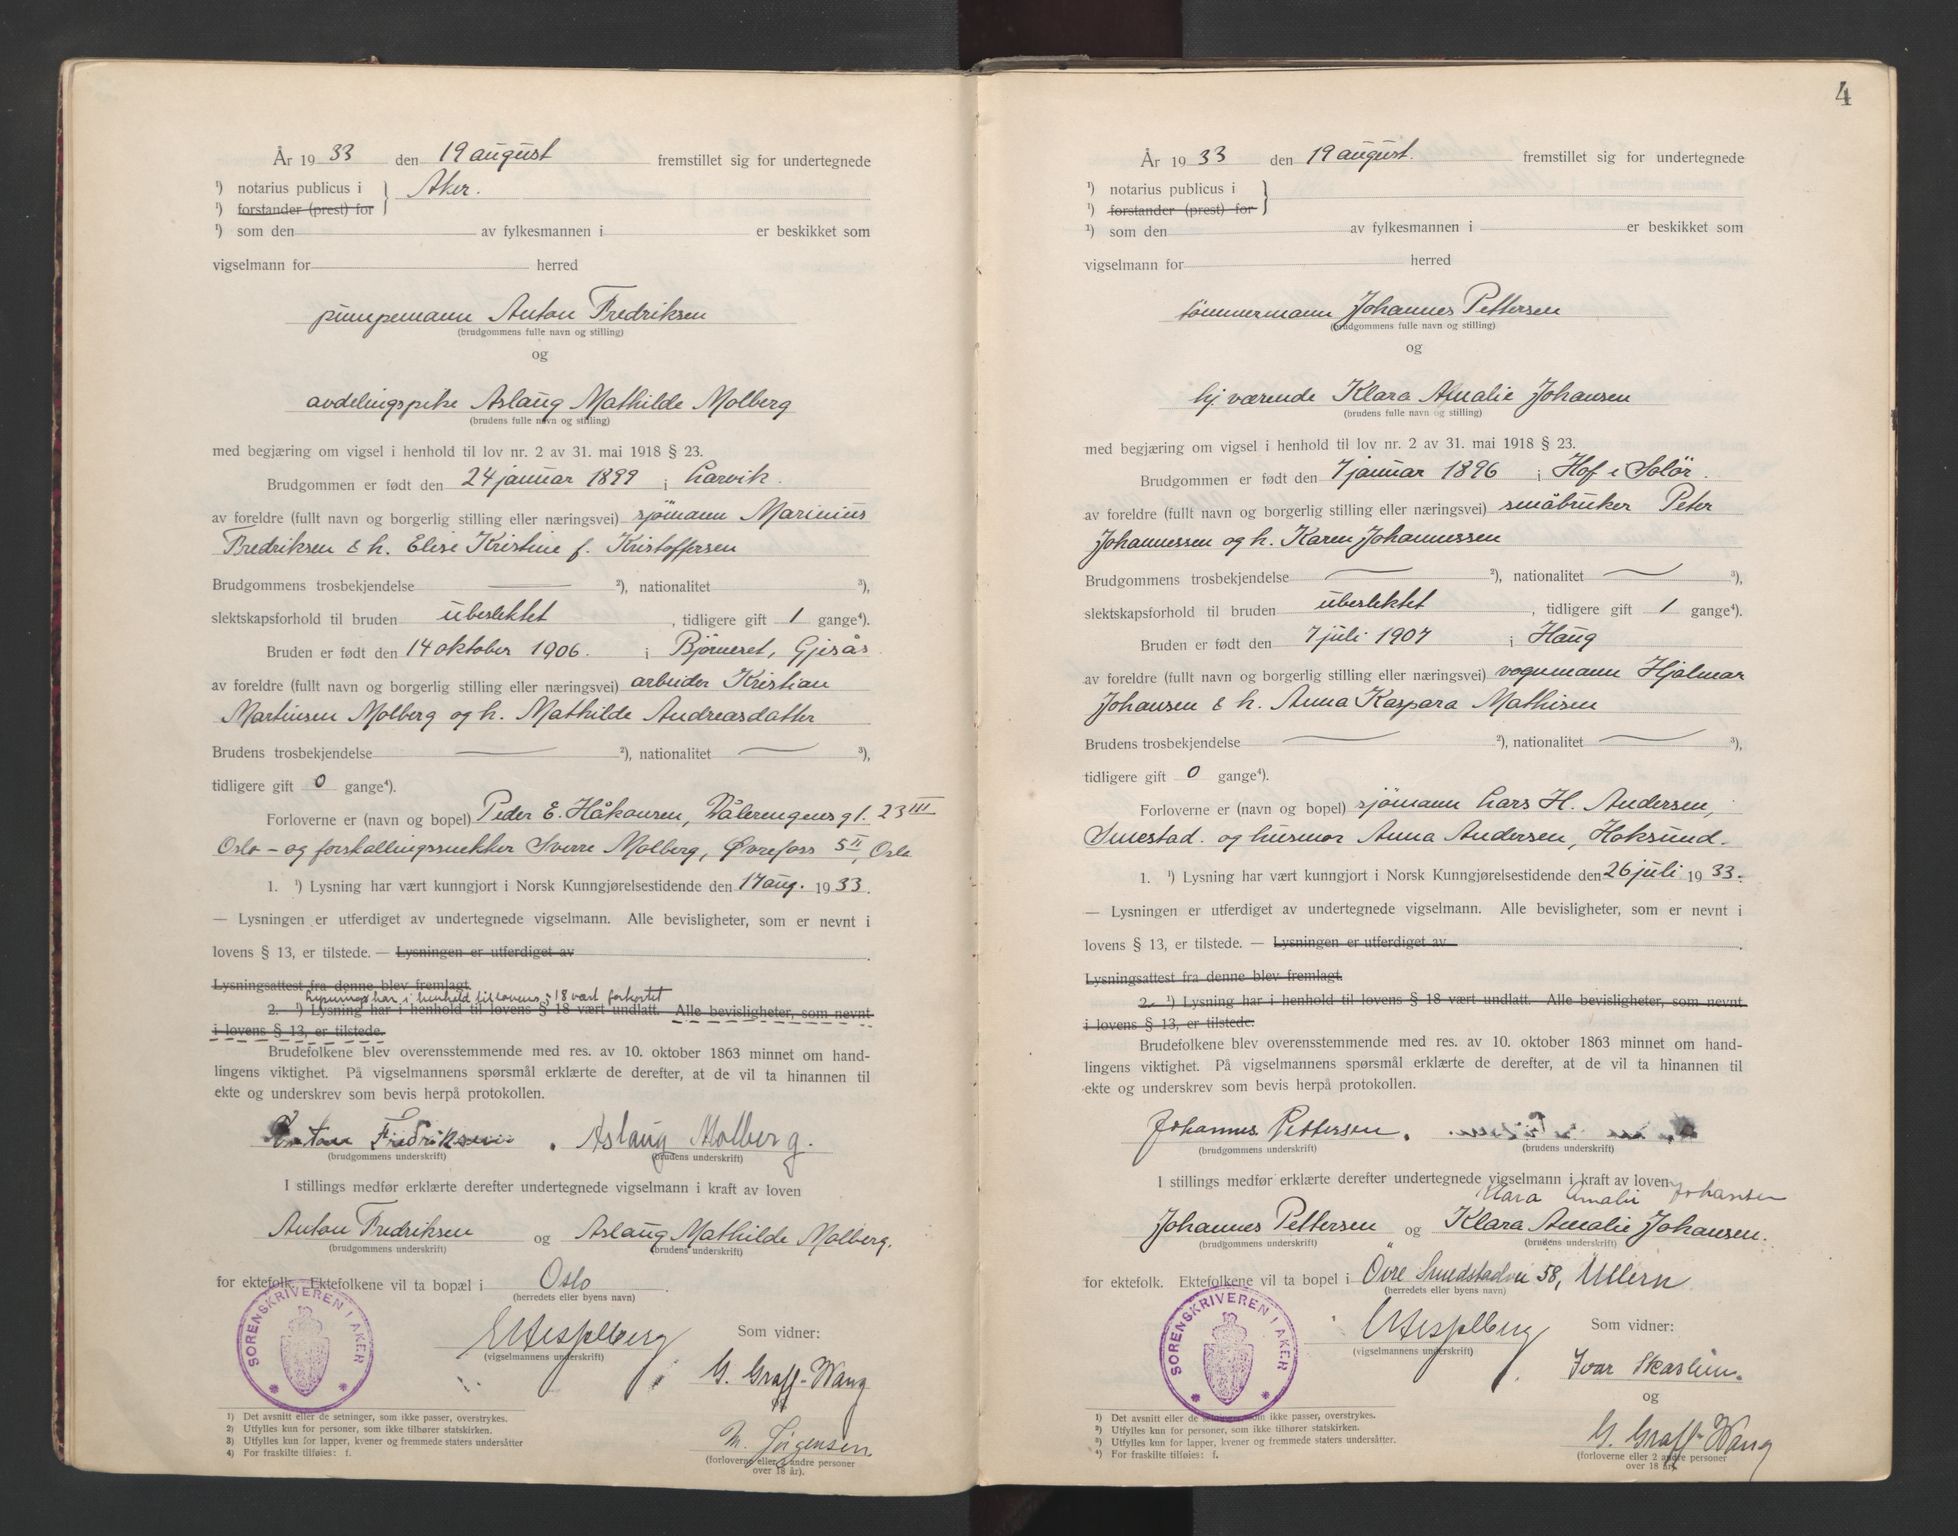 År 19 33 den 19 august fremstillet sig for undertegnede
¹) notarius publicus i } Aker.
¹) forstander (prest) for
¹) som den av fylkesmannen i er beskikket som
vigselmann for herred
pumpemann Anton Fredriksen
(brudgommens fulle navn og stilling)
og
avdelingspike Aslaug Mathilde Molberg
(brudens fulle navn og stilling)
med begjæring om vigsel i henhold til lov nr. 2 av 31. mai 1918 § 23.
Brudgommen er født den 24 januar 1899 i Larvik.
av foreldre (fullt navn og borgerlig stilling eller næringsvei) sjømann Marinius
Fredriksen & h. Elise Kristine f. Kristoffersen
Brudgommens trosbekjendelse ²), nationalitet ³),
slektskapsforhold til bruden ubeslektet, tidligere gift 1 gange⁴).
Bruden er født den 14 oktober 1906. i Gjesås
av foreldre (fullt navn og borgerlig stilling eller næringsvei) arbeider Kristian
Martinsen Molberg og h. Mathilde Andreasdatter
Brudens trosbekjendelse ²), nationalitet ³),
tidligere gift 0 gange⁴).
Forloverne er (navn og bopel) Peder E. Håkonsen, Vålerengens gt. 23 III
Oslo - og forskallingssnekker Sverre Molberg, Øvrefoss 5 II, Oslo
1. ¹) Lysning har vært kunngjort i Norsk Kunngjørelsestidende den 17 aug. 1933.
— Lysningen er utferdiget av undertegnede vigselmann. Alle bevisligheter, som er nevnt i
lovens § 13, er tilstede. — Lysningen er utferdiget av
Lysningsattest fra denne blev fremlagt.
Lysning har i henhold til lovens § 18 vært forkortet
2. ¹) Lysning har i henhold til lovens § 18 vært undlatt. Alle bevisligheter, som nevnt
i lovens § 13, er tilstede.
Brudefolkene blev overensstemmende med res. av 10. oktober 1863 minnet om hand-
lingens viktighet. På vigselmannens spørsmål erklærte de derefter, at de vil ta hinannen til
ekte og underskrev som bevis herpå protokollen.
Anton Fredriksen. Aslaug Molberg.
(brudgommens underskrift) (brudens underskrift)
I stillings medfør erklærte derefter undertegnede vigselmann i kraft av loven
Anton Fredriksen og Aslaug Mathilde Molberg.
(brudgommens underskrift) (brudens underskrift)
for ektefolk. Ektefolkene vil ta bopæl i Oslo
(herredets eller byens navn)
SORENSKRIVEREN I AKER
(vigselmannens underskrift)
Som vidner:
G. Graff-Wang
og
M. Jörgensen
(forloverne eller 2 andre personer
over 18 år).
1) Det avsnitt eller de setninger, som ikke passer, overstrykes.
2) Utfylles kun for personer, som ikke tilhører statskirken.
3) Utfylles kun for lapper, kvener og fremmede staters undersåtter
4) For fraskilte tilføies: f.
4
År 19 33 den 19 august. fremstillet sig for undertegnede
¹) notarius publicus i }
¹) forstander (prest) for
¹) som den av fylkesmannen i er beskikket som
vigselmann for herred
tømmermann Johannes Pettersen
(brudgommens fulle navn og stilling)
og
hj. værende Klara Amalie Johansen
(brudens fulle navn og stilling)
med begjæring om vigsel i henhold til lov nr. 2 av 31. mai 1918 § 23.
Brudgommen er født den 7 januar 1896 i Hof i Solör.
av foreldre (fullt navn og borgerlig stilling eller næringsvei) småbruker Peter
Johannessen og h. Karen Johannessen
Brudgommens trosbekjendelse ²), nationalitet ³),
slektskapsforhold til bruden ubeslektet, tidligere gift 1 gange⁴).
Bruden er født den 7 juli 1907 i Haug
av foreldre (fullt navn og borgerlig stilling eller næringsvei) vognmann Hjalmar
Johansen & h. Anna Kaspara Mathisen
Brudens trosbekjendelse ²), nationalitet ³),
tidligere gift 0 gange⁴).
Forloverne er (navn og bopel) sjømann Lars H. Andersen,
Smestad. og husmor Anna Andersen, Hoksund.
1. ¹) Lysning har vært kunngjort i Norsk Kunngjørelsestidende den 26 juli 1933.
— Lysningen er utferdiget av undertegnede vigselmann. Alle bevisligheter, som er nevnt i
lovens § 13, er tilstede. — Lysningen er utferdiget av
Lysningsattest fra denne blev fremlagt.
2. ¹) Lysning har i henhold til lovens § 18 vært undlatt. Alle bevisligheter, som nevnt
i lovens § 13, er tilstede.
Brudefolkene blev overensstemmende med res. av 10. oktober 1863 minnet om hand-
lingens viktighet. På vigselmannens spørsmål erklærte de derefter, at de vil ta hinannen til
ekte og underskrev som bevis herpå protokollen.
Johannes Pettersen.
(brudgommens underskrift) (brudens underskrift)
I stillings medfør erklærte derefter undertegnede vigselmann i kraft av loven
Klara Amalie Johansen
Johannes Pettersen og Klara Amalie Johansen.
(brudgommens underskrift) (brudens underskrift)
for ektefolk. Ektefolkene vil ta bopel i Övre Smedstadvei 58, Ullern
(herredets eller byens navn)
SORENSKRIVEREN I AKER
(vigselmannens underskrift)
Som vidner:
Ivar
og
G. Graff-Wang
(forloverne eller 2 andre personer
over 18 år).
¹) Det avsnitt eller de setninger, som ikke passer, overstrykes.
²) Utfylles kun for personer, som ikke tilhører statskirken.
³) Utfylles kun for lapper, kvener og fremmede staters undersåtter.
⁴) For fraskilte tilføies: f.